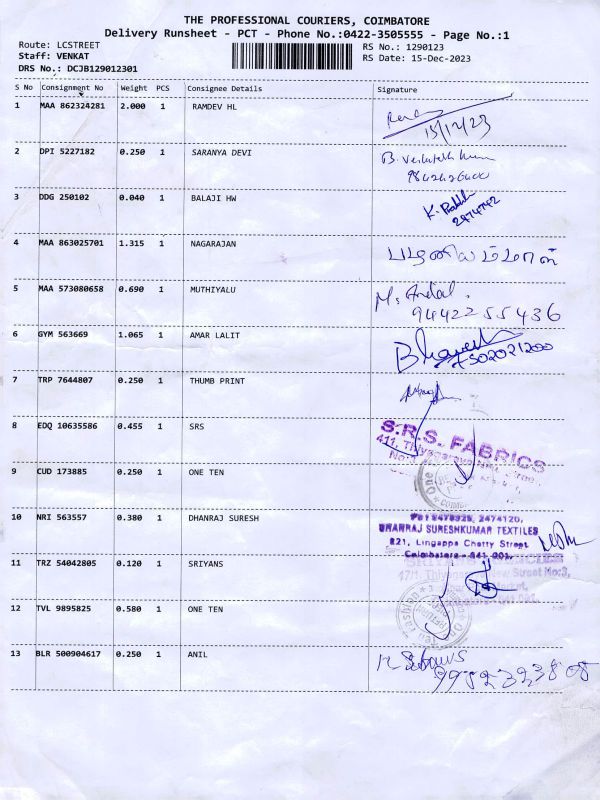 THE PROFESSIONAL COURIERS, COIMBATORE
Delivery Runsheet - PCT - Phone No.:0422-3505555 - Page No.:1
Route: LCSTREET RS No.: 1290123
Staff: VENKAT RS Date: 15-Dec-2023
DRS No.: DCJB129012301
S No Consignment No Weight PCS Consignee Details Signature
1 MAA 862324281 2.000 1 RAMDEV HL
15/12/23
2 DPI 5227182 0.250 1 SARANYA DEVI
3 DDG 250102 0.040 1 BALAJI HW
2474742
4 MAA 863025701 1.315 1 NAGARAJAN
5 MAA 573080658 0.690 1 MUTHIYALU M. Andal.
9442255436
6 GYM 563669 1.065 1 AMAR LALIT Bhavesh
7 TRP 7644807 0.250 1 THUMB PRINT
8 EDQ 10635586 0.455 1 SRS S.R.S. FABRICS
9 CUD 173885 0.250 1 ONE TEN
10 NRI 563557 0.380 1 DHANRAJ SURESH 2474120,
DHANRAJ SURESHKUMAR TEXTILES
821, Lingappa Chetty Street
Coimbatore - 641 001.
11 TRZ 54042805 0.120 1 SRIYANS
12 TVL 9895825 0.580 1 ONE TEN
13 BLR 500904617 0.250 1 ANIL